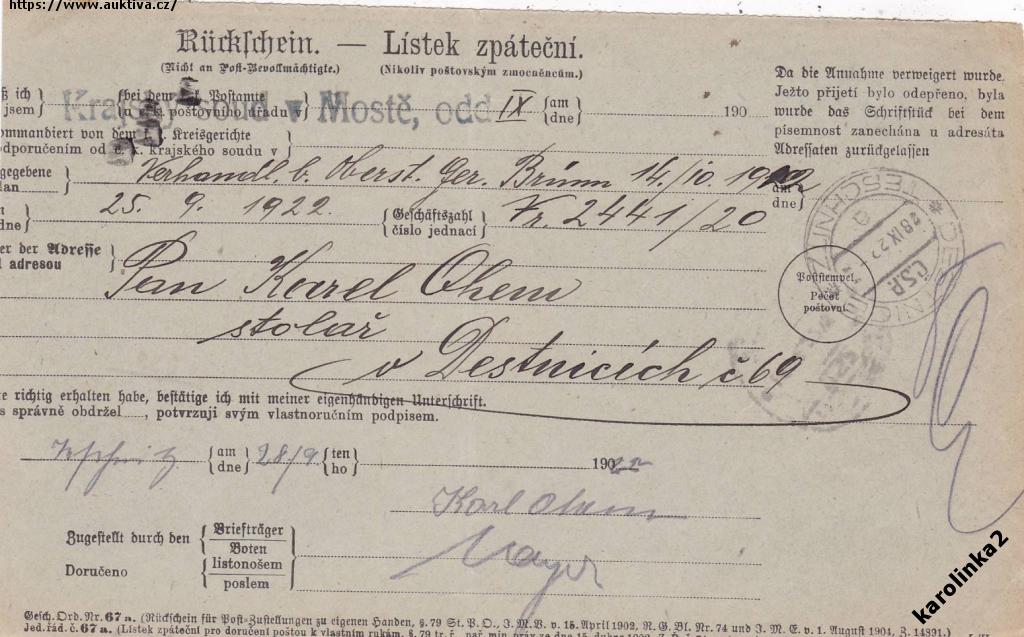 https://www.auktiva.cz/
Rückschein. — Lístek zpáteční.
(Nicht an Post-Bevollmächtigte.) (Nikoliv poštovským zmocněncům.)
Da die Annahme verweigert wurde.
Ježto přijetí bylo odepřeno, byla
wurde das Schriftstück bei dem
písemnost zanechána u adresáta
Adressaten zurückgelassen
ß ich (bei dem k. Postamte am
jsem u c. k. poštovního úřadu v dne 190
Krajský soud v Mostě, odd IX
kommandiert von dem k. k. Kreisgerichte
doporučením od c. k. krajského soudu v
gegebene Verhandl. b. Oberst. Ger. Brünn 14/10. 1922 am
dne
25. 9. 1922. Geschäftszahl Vr. 2441/20
dne číslo jednací
er der Adresse
adresou
Pan Karel Ohem
stolař
v Destnicích č 69
DESCHNITZ
28 IX 22
Č.S.P.
Poststempel
Pečeť
poštovní
te richtig erhalten habe, bestätige ich mit meiner eigenhändigen Unterschrift.
s správně obdržel, potvrzuji svým vlastnoručním podpisem.
am 28/9 ten
dne ho 1922
Karl Ohem
Zugestellt durch den Briefträger
Boten
Doručeno listonošem
poslem
Mayer
Gesch. Ord. Nr. 67 a. (Rückschein für Post-Zustellungen zu eigenen Handen, §. 79 St. P. O., J. M. V. v. 15. April 1902, R. G. Bl. Nr. 74 und J. M. E. v. 1. August 1904, Z. 14931.)
Jed. řád. č. 67 a. (Lístek zpáteční pro doručení poštou k vlastním rukám, §. 79 tr. ř.
karolinka2